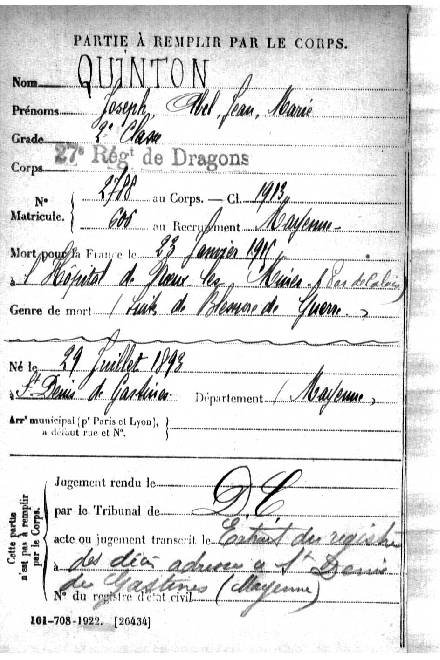 PARTIE À REMPLIR PAR LE CORPS.
Nom QUINTON
Prénoms Joseph, Abel, Jean, Marie
Grade 2e Classe
Corps 27e Régt de Dragons
N° Matricule. { 2788 au Corps. — Cl. 1913
606 au Recrutement Mayenne
Mort pour la France le 23 Janvier
à l'Hôpital de Nœux les Mines (Pas de Calais)
Genre de mort (Suite de Blessure de Guerre)
Né le 29 Juillet 1893
à St Denis de Gastines Département (Mayenne)
Arrt municipal (pr Paris et Lyon), à défaut rue et N°. }
Cette partie n'est pas à remplir par le Corps. {
Jugement rendu le
par le Tribunal de D.C
acte ou jugement transcrit le Extrait du registre
à des décès adressé à St Denis
de Gastines (Mayenne)
N° du registre d'état civil
101-708-1922. [26434]